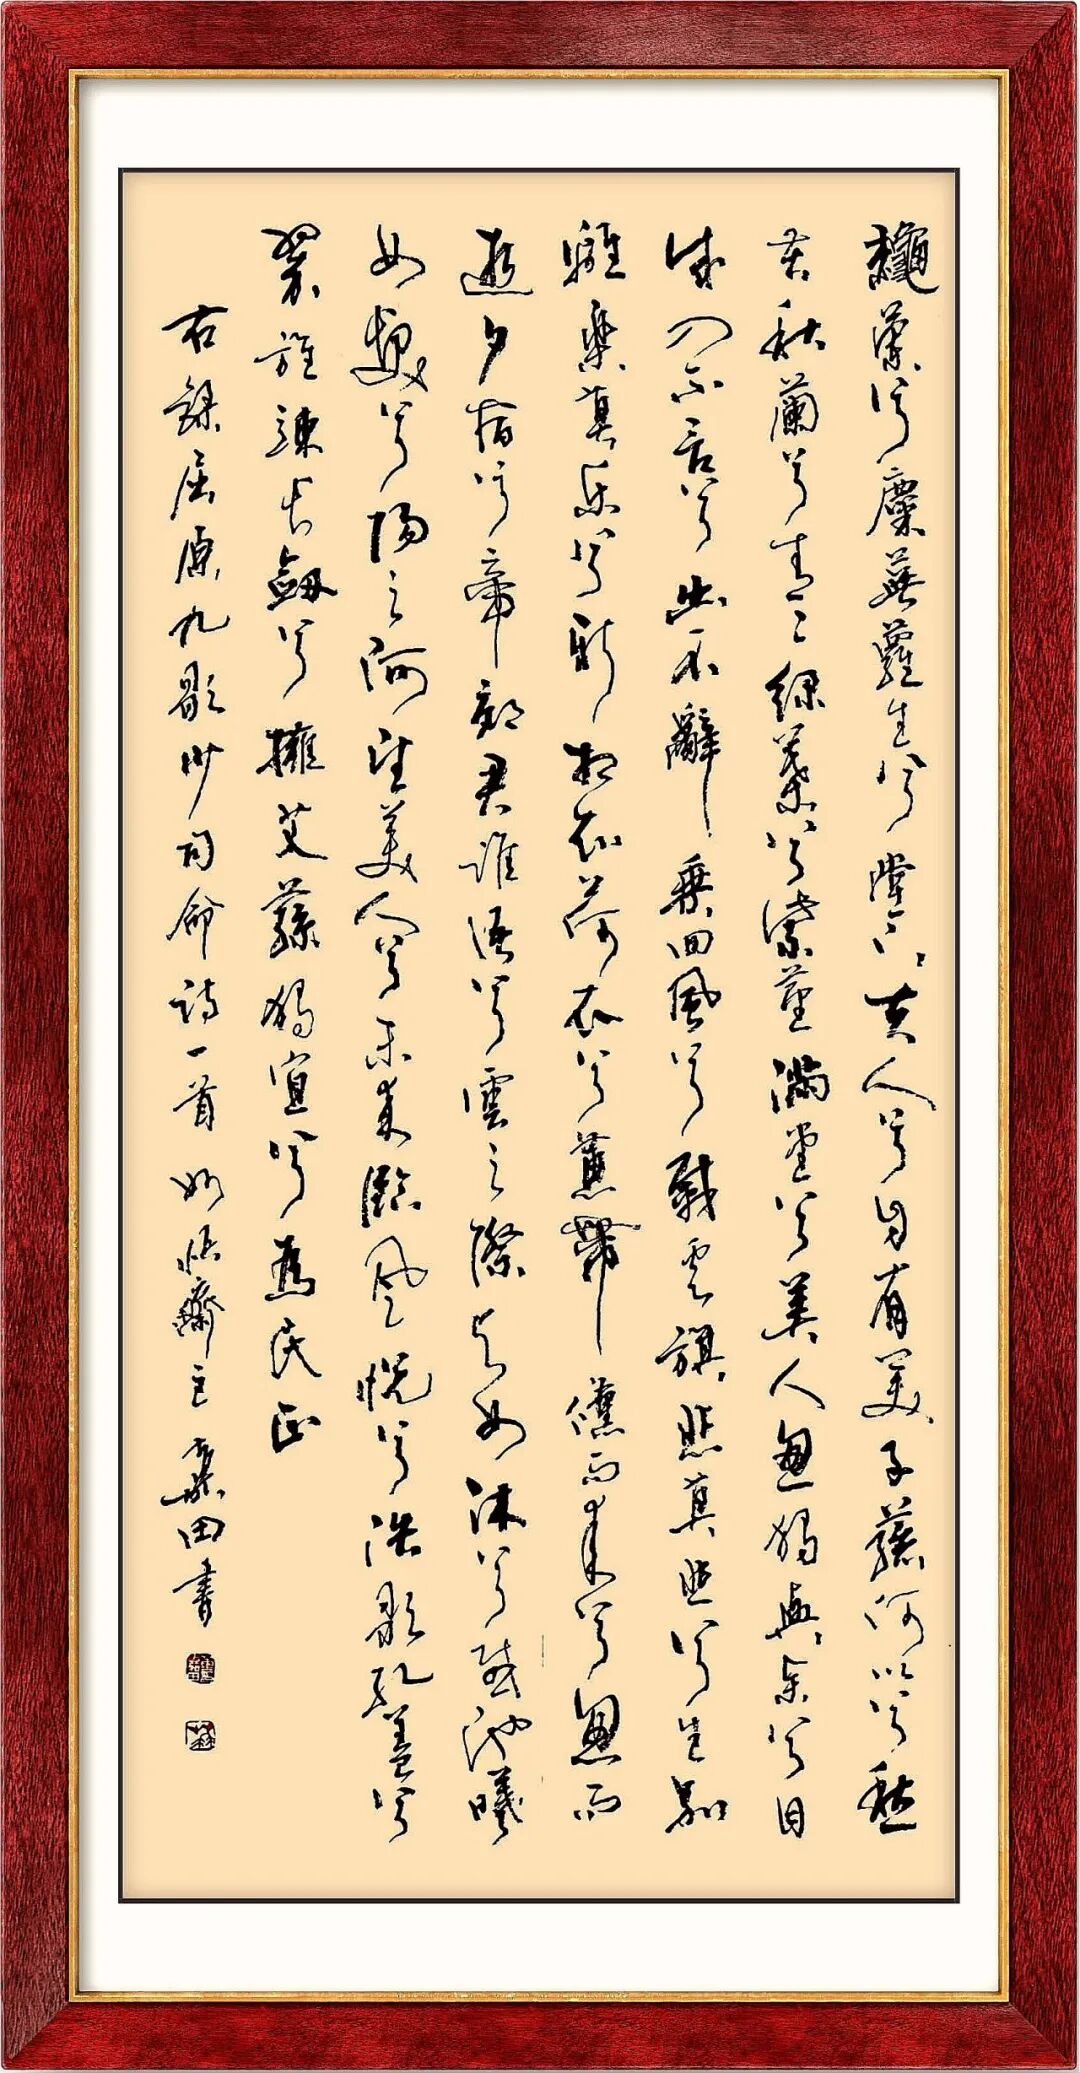 龝蘭兮麋蕪羅生兮堂下夫人兮自有美子蓀何以兮愁
苦秋蘭兮青〻綠葉兮紫莖滿堂兮美人忽獨與余兮目
成入不言兮出不辭乘回風兮載雲旗悲莫悲兮生別
離樂莫樂兮新相知荷衣兮蕙帶儵而來兮忽而
逝夕宿兮帝郊君誰須兮雲之際與女沐兮咸池曦
女髮兮陽之阿望美人兮未來臨風怳兮浩歌孔蓋兮
翠旌竦長劍兮擁艾蓀獨宜兮為民正
右錄屈原九歌少司命詩一首 如恬齋主 桑田書